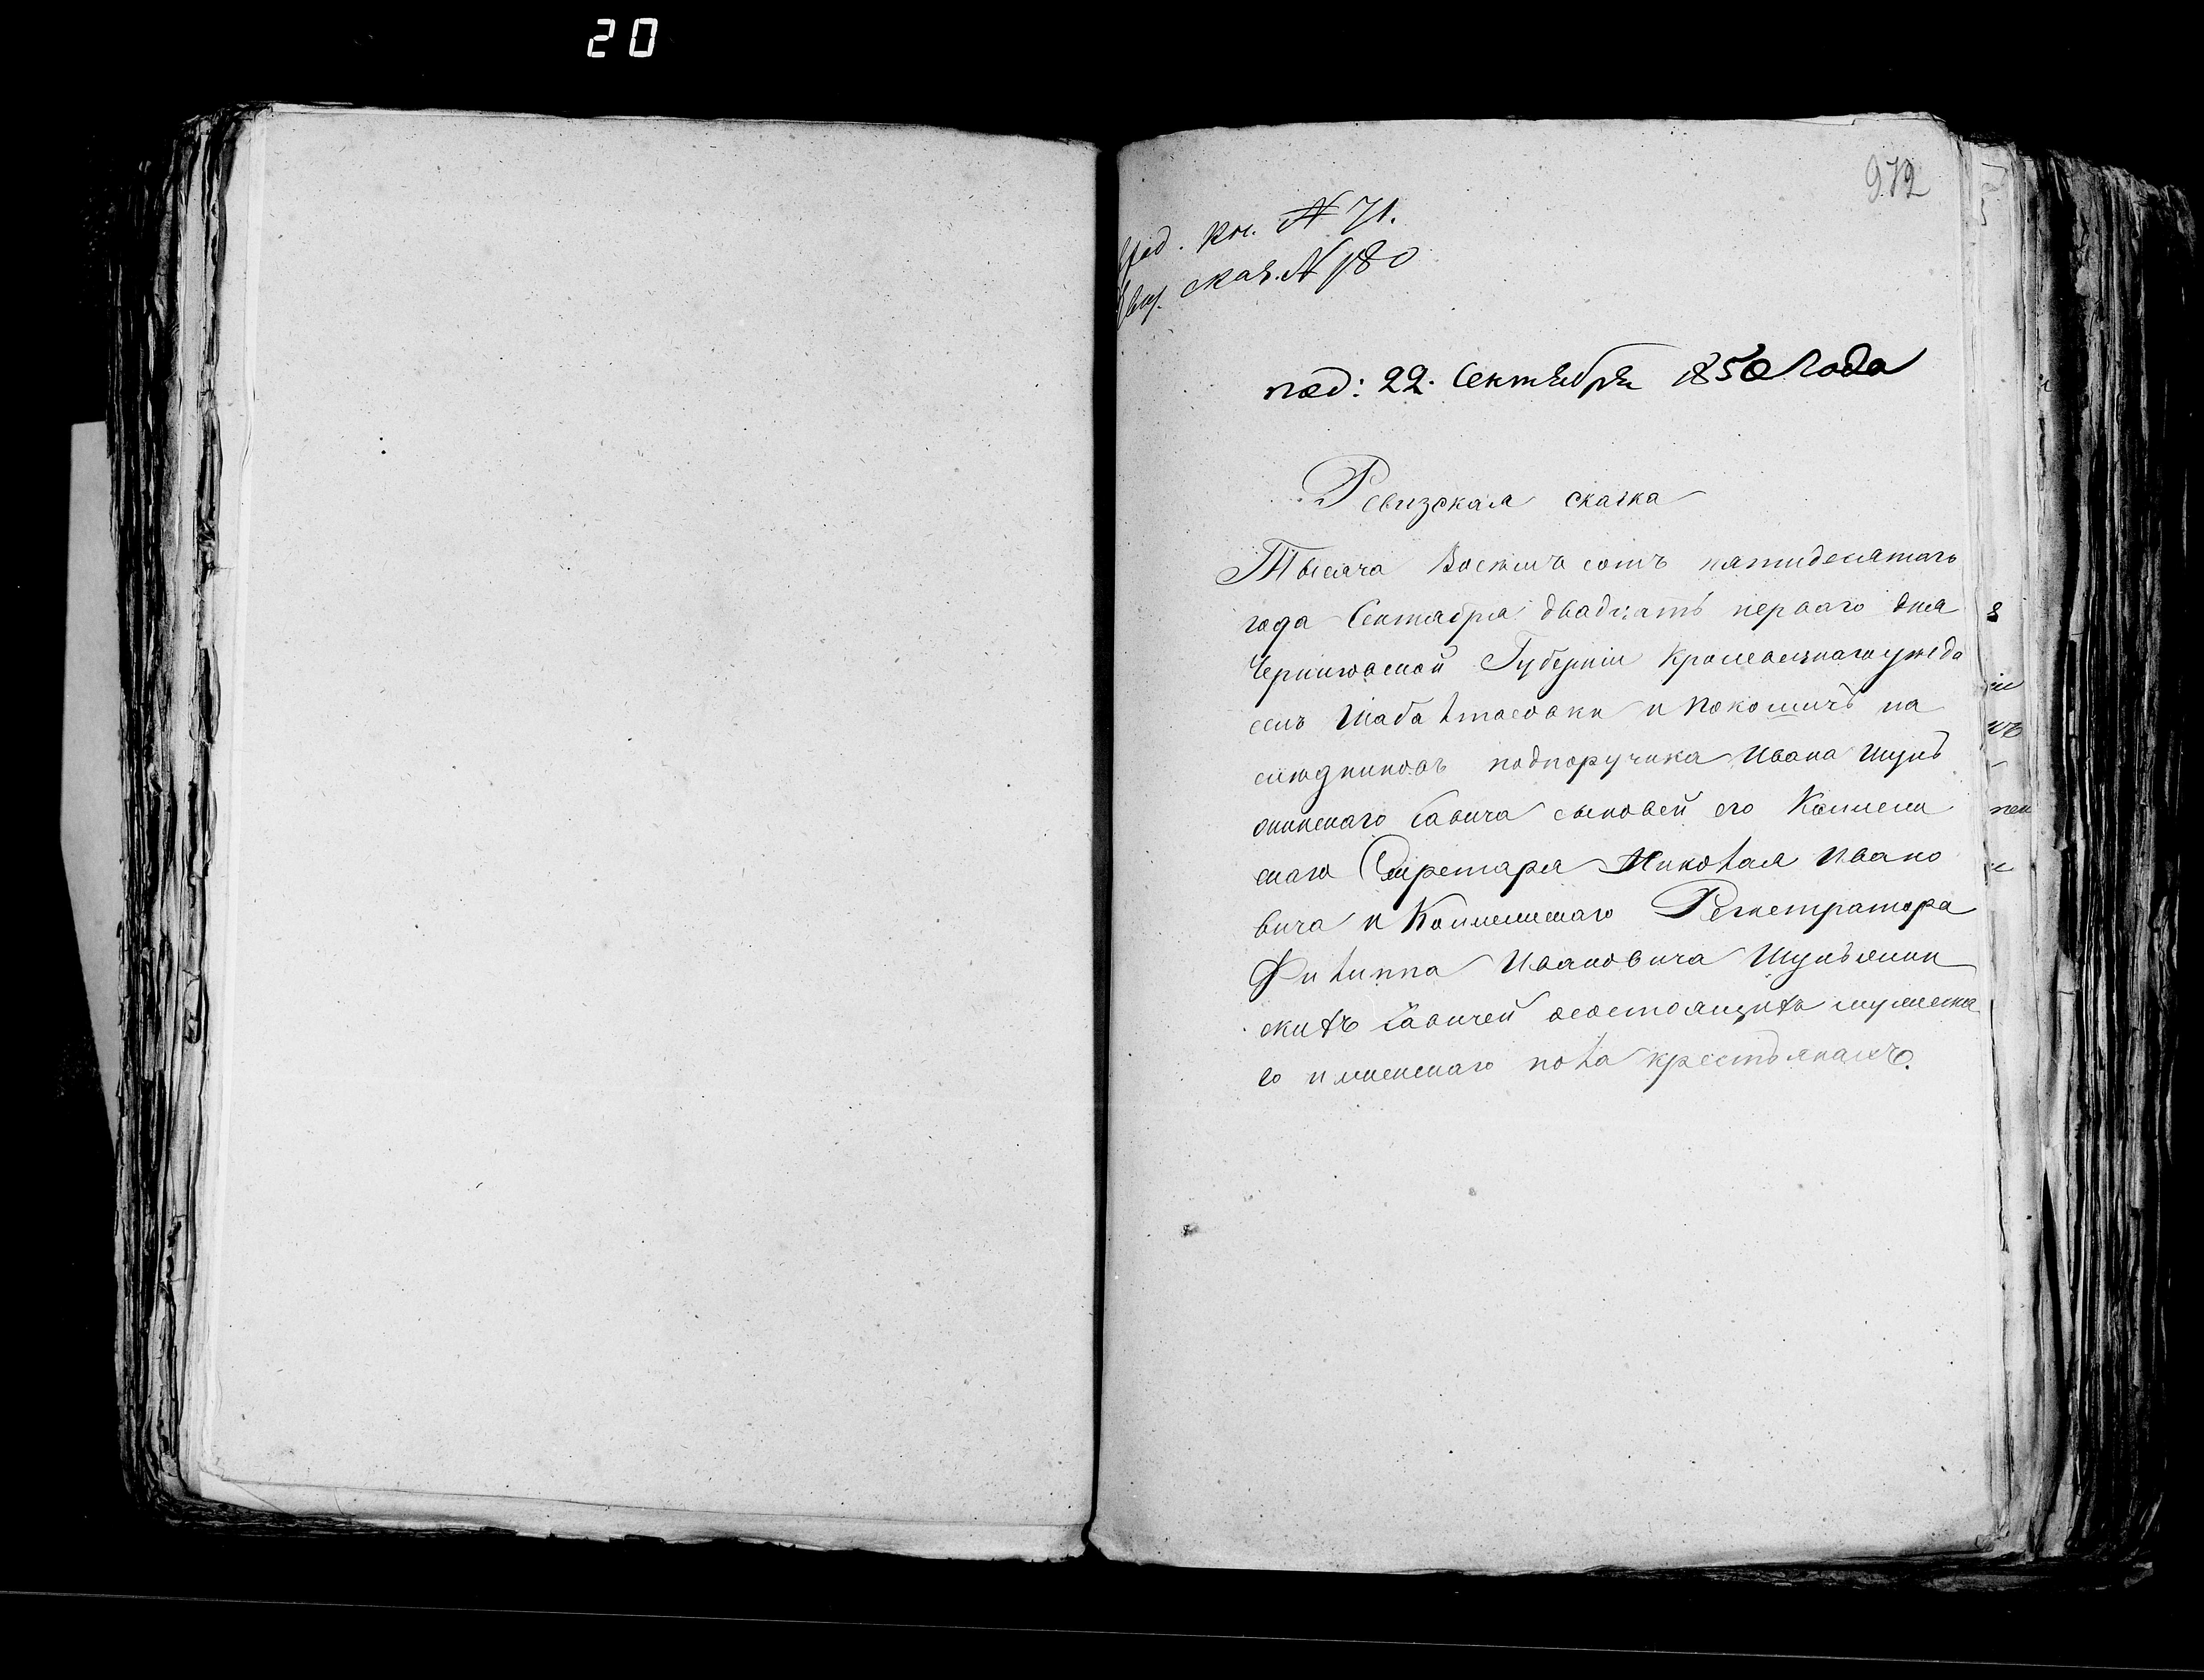 20
972
кн. № 71.
сказ. № 180
под: 22. Сентября 1850 Года
Ревизская сказка
Тысяча Восемъ сотъ пятидесятого
года Сентября двадцать перваго дня
Черниговской Губерніи Кролевецкаго уезда
селъ Шабалтасовки и Покошичъ на
следниковъ подпоручика Ивана Шунъ
онинскаго Савича сыновей его Коллеж
скаго Секретаря Николая Ивано
вича и Коллежскаго Регистратора
Филиппа Ивановича Шунъянин
скихъ Савичей о состоящихъ мужеска
го и женскаго пола крестьянахъ.